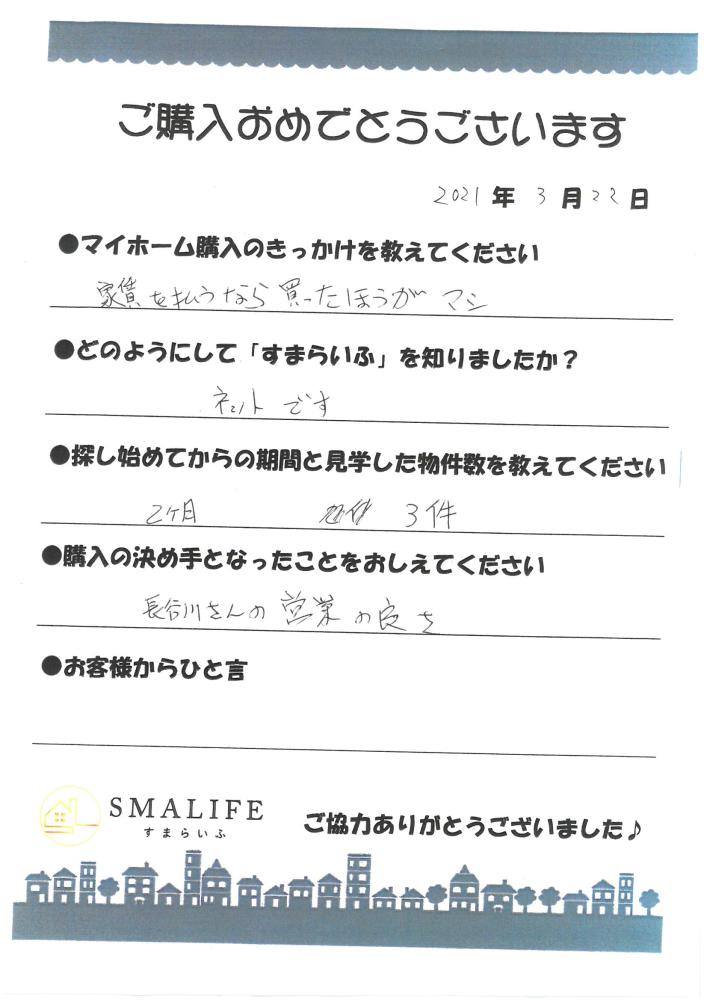 ご購入おめでとうございます
2021年3月22日
●マイホーム購入のきっかけを教えてください
家賃を払うなら買ったほうがマシ
●どのようにして「すまらいふ」を知りましたか？
ネットです
●探し始めてからの期間と見学した物件数を教えてください
2ヶ月 3件
●購入の決め手となったことをおしえてください
長谷川さんの営業の良さ
●お客様からひと言
SMALIFE
すまらいふ
ご協力ありがとうございました♪